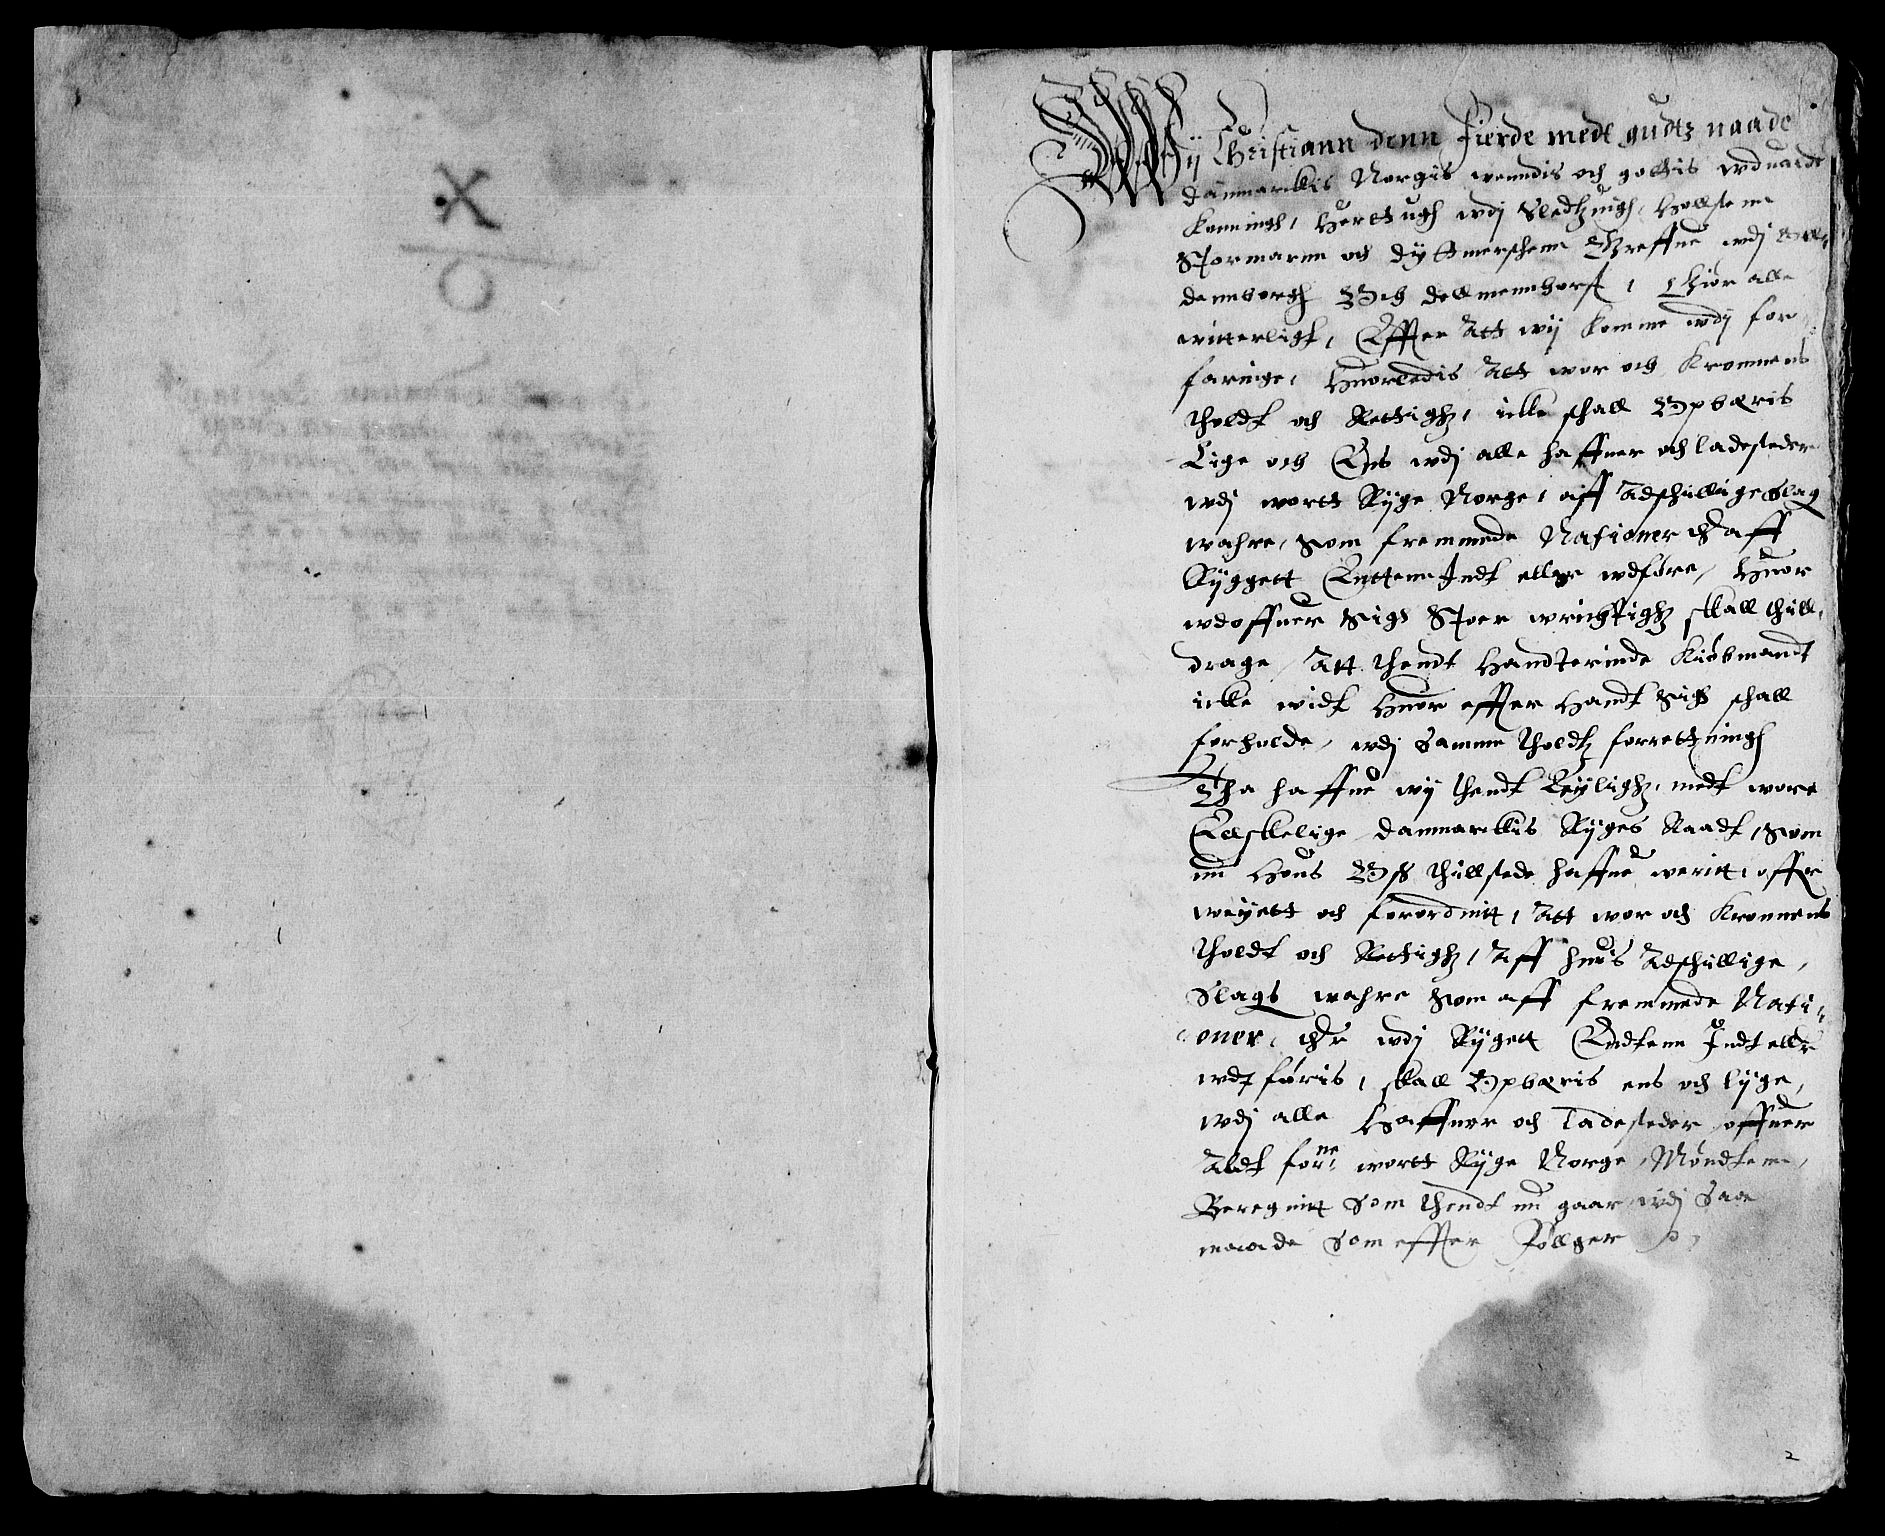 Wij Christiann denn Fierde medt gudtz naade
Danmarckis Norgis wenndis och gottis wdualdt
Konningh, Herttugh wdj Sledtzuigh, Hollstenn
Stormarnn och Dyttmerschenn Greffue wdj Oll,
dennborgh Och dellmennhorst, Giør alle
witterligt, Effter Att wij komme wdj for
faringe, Huorledis Att wor och Kronnens
tholdt och Rettighz, icke schall Opbæris
Lige och Ens wdj alle haffner och ladesteder
wdj wortt Ryge Norge, aff Adschillige slag
wahre, som fremmede Nationer der aff
Ryggett Enttenn Indt eller wdføre, Huor
wdoffuer sigh Stoer wrichtighz skall thill,
drage, Att thendt Handterinde Kiøbmandt
icke widt huor effter handt sigh schall
forholde, wdj samme tholdtz forrettningh
Tha haffue wij thendt Leylighz, medt wore
Elskelige Danmarckis Ryges Raadt, som
nu hous Osz thillstede haffue weritt, offuer
weyett och forordnitt, Att wor och Kronnens
tholdt och Rettighz, Aff huis Adschillige,
Slags wahre som aff fremmede Nati,
oner, der wdj Rygett Endtenn Indt eller
wdt føris, skall Opbæris ens och lyge,
wdj alle Haffner och Ladesteder offuer
Aldt forne wortt Ryge Norge, Møndtenn,
Beregnitt som thendt nu gaar wdj saa
maade som effter Føllger
2